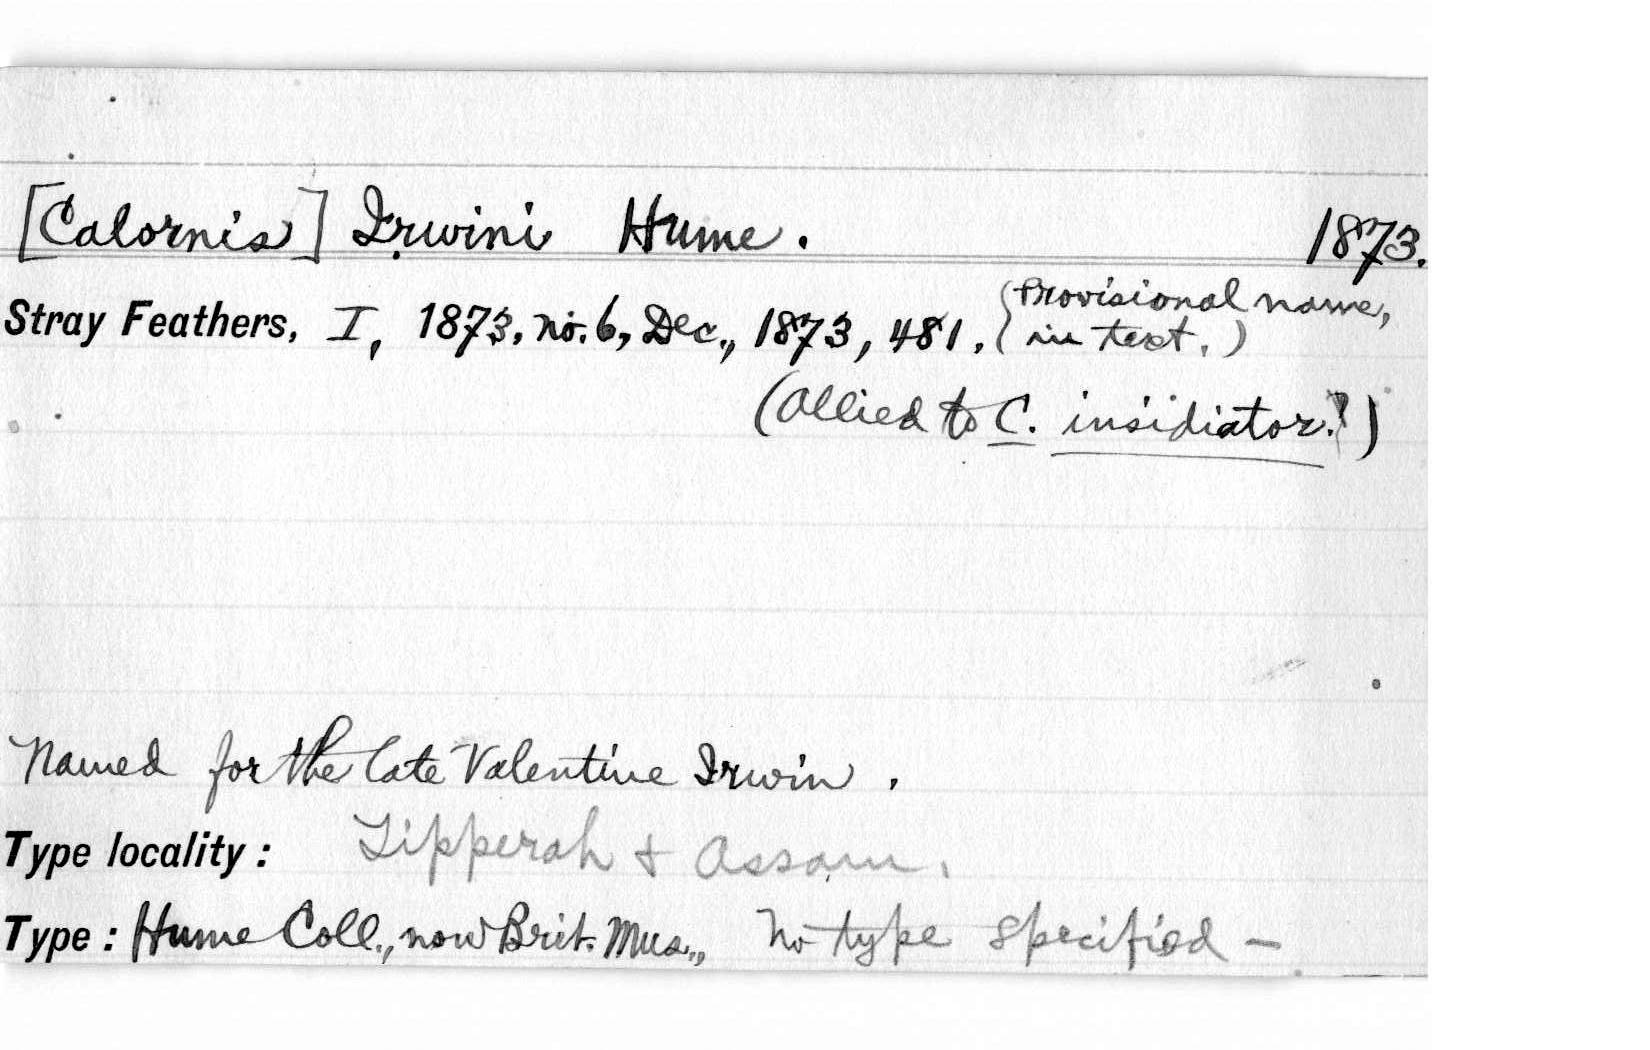 [Calornis] Irwini Hume. 1873.
Stray Feathers, I, 1873, no. 6, Dec., 1873, 481. (Provisional name,
in text.)
(Allied to C. insidiator!)
Named for the late Valentine Irwin.
Type locality: Tipperah & Assam.
Type: Hume Coll., now Brit. Mus., No type specified —